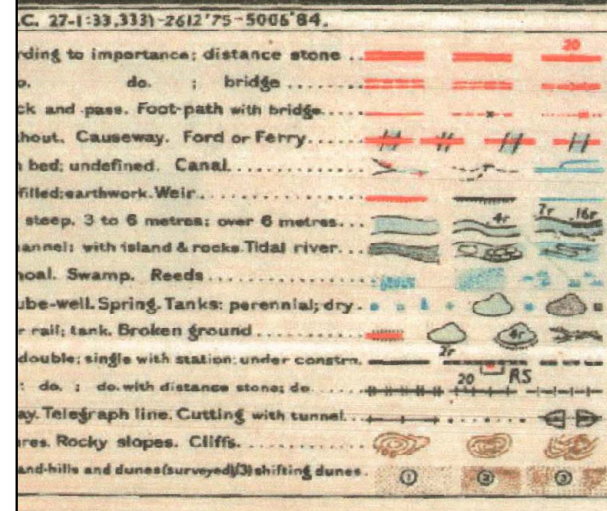 .C. 27-1:33,333)-2612'75-5006'84.
rding to importance; distance stone ... 20
o. do. ; bridge ......
ck and pass. Foot-path with bridge....
hout. Causeway. Ford or Ferry....
bed; undefined. Canal............
filled; earthwork. Weir...............
steep. 3 to 6 metres; over 6 metres... 4r 7r 16r
annel; with island & rocks. Tidal river...
hoal. Swamp. Reeds ...............
ube-well. Spring. Tanks: perennial; dry.
r rail; tank. Broken ground ........... 4r
double; single with station; under constrn. 2r RS
: do. ; do. with distance stone; do....... 20
ay. Telegraph line. Cutting with tunnel....
res. Rocky slopes. Cliffs............
and-hills and dunes (surveyed)(3) shifting dunes. 1 2 3